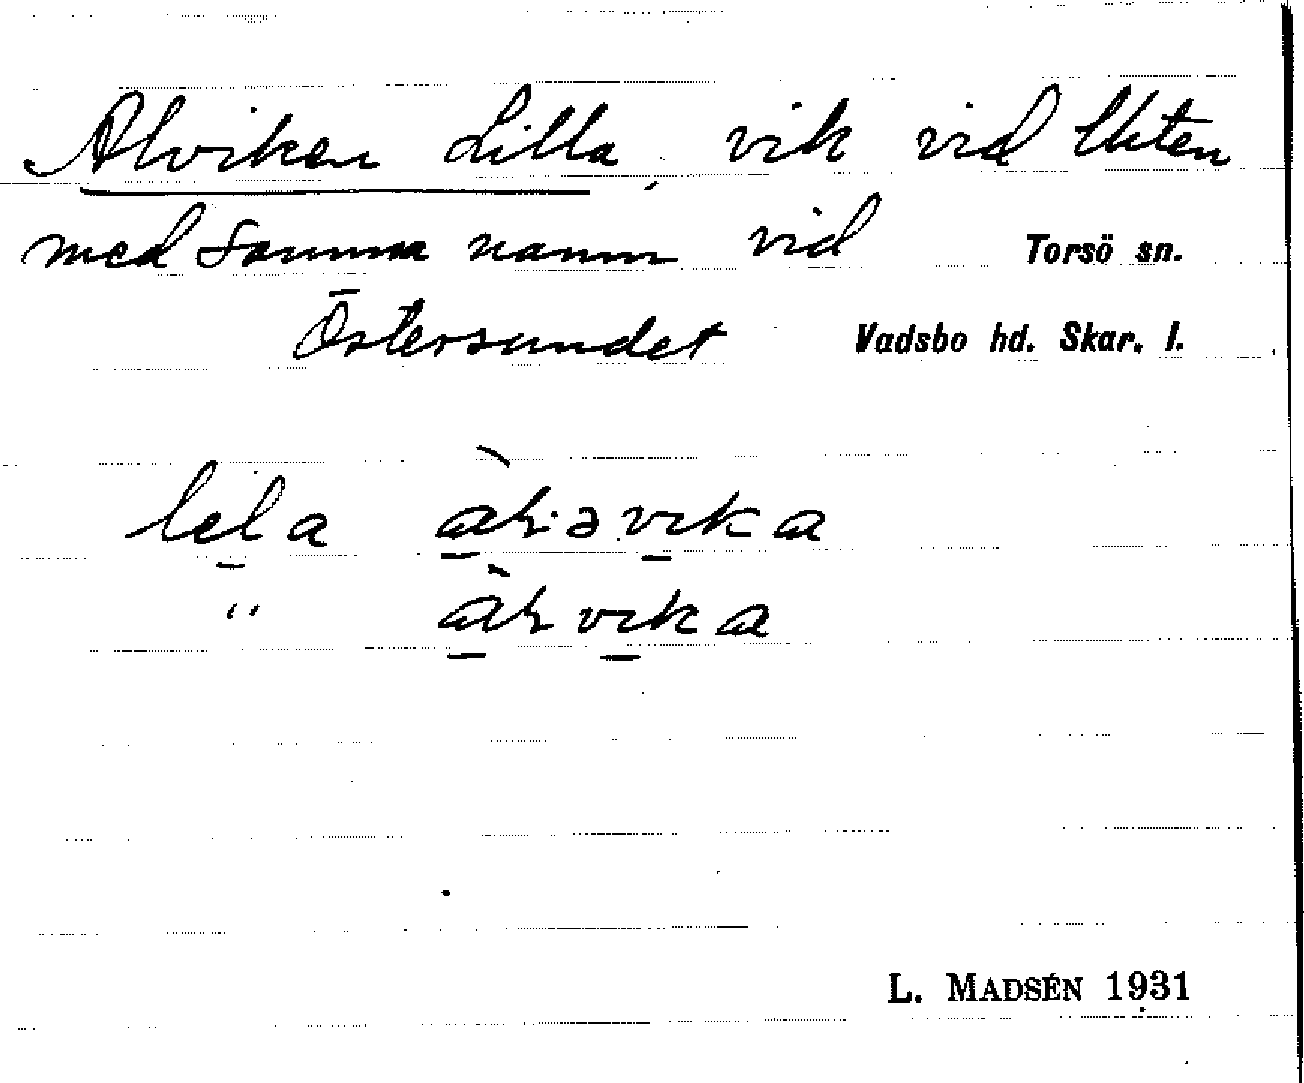 Alviken Lilla, vik vid Viken
med samma namn vid Torsö sn.
Östersundet Vadsbo hd. Skar. l.
lela
"
L. MADSÉN 1931